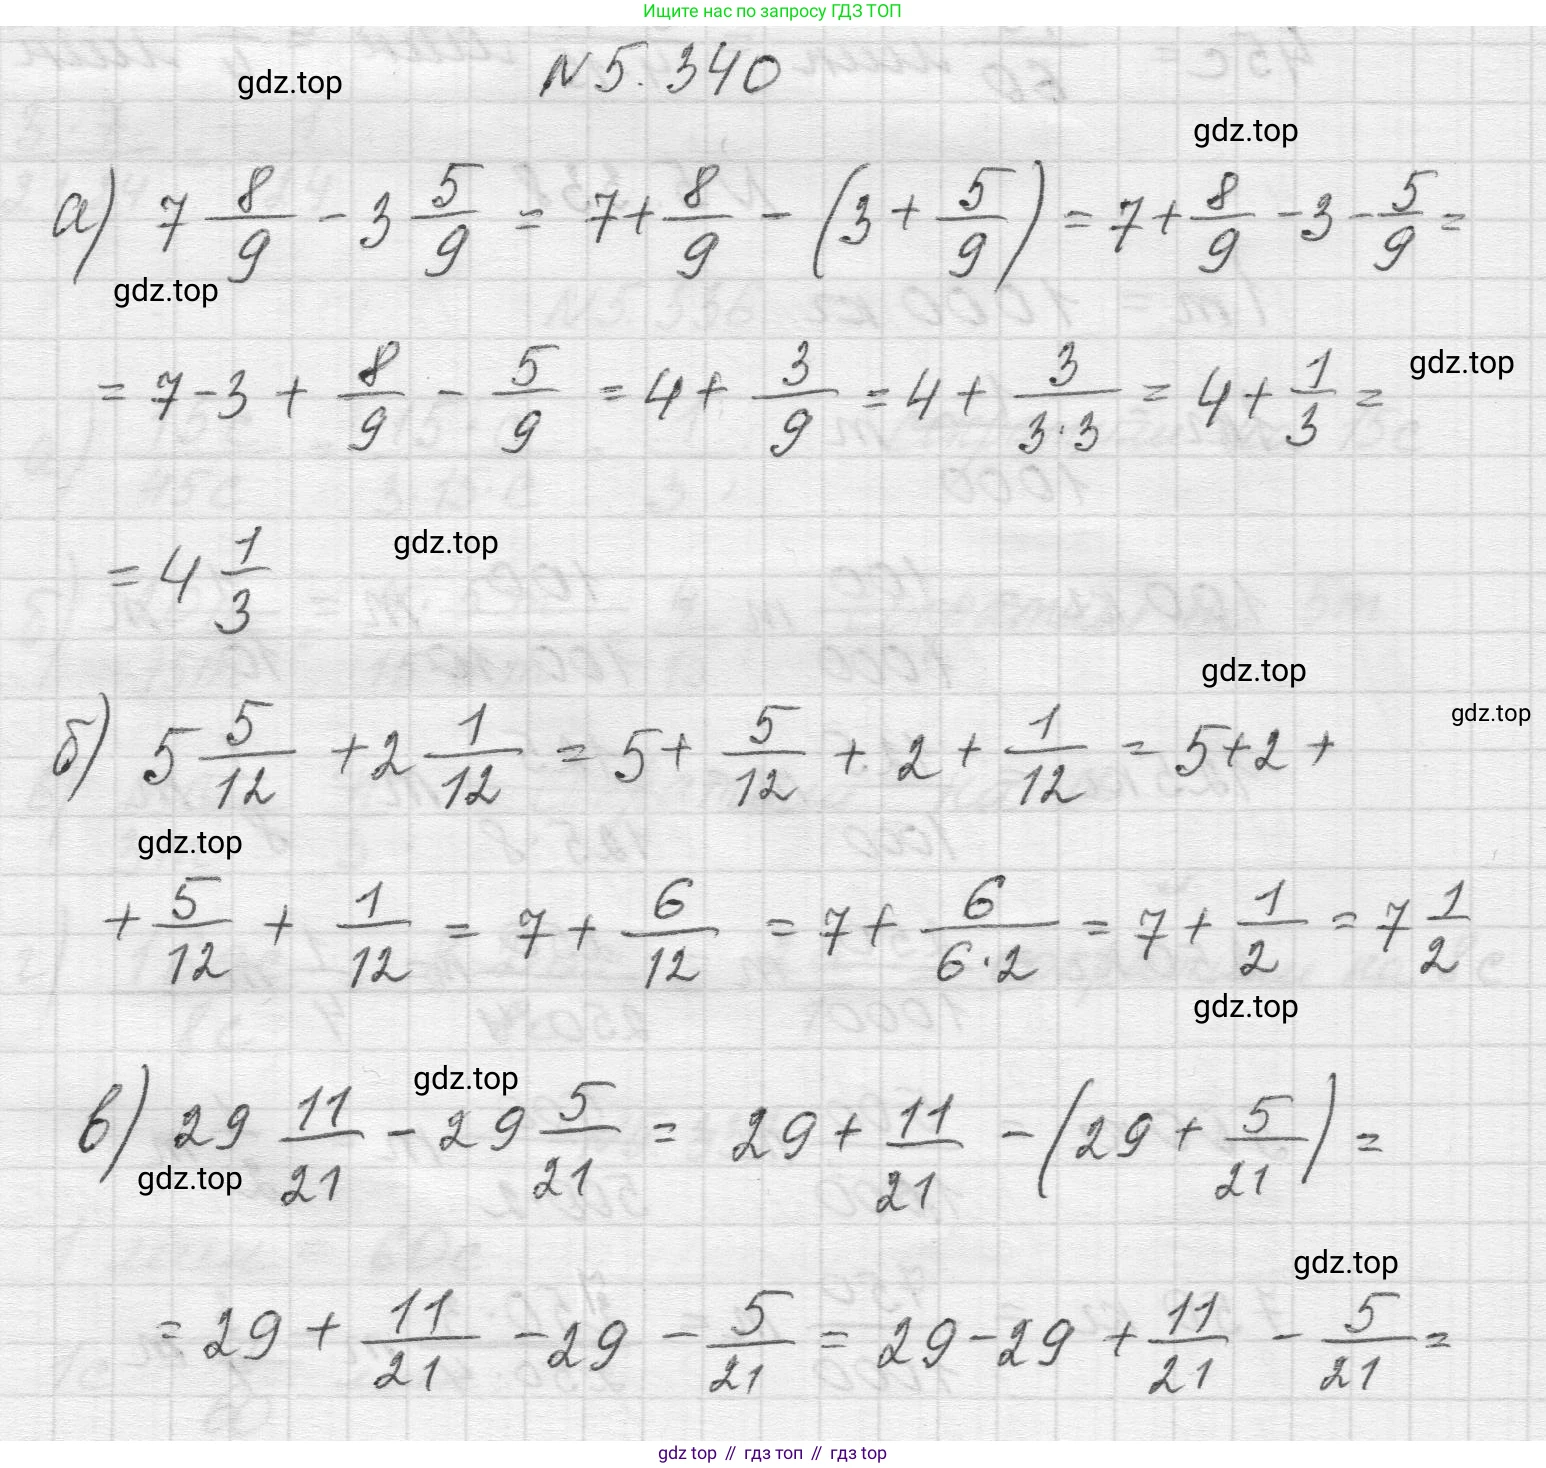 Ищите нас по запросу ГДЗ ТОП
N 5.340
gdz.top
gdz.top
а) 7 8/9 - 3 5/9 = 7 + 8/9 - (3 + 5/9) = 7 + 8/9 - 3 - 5/9 =
gdz.top
= 7 - 3 + 8/9 - 5/9 = 4 + 3/9 = 4 + 3/(3·3) = 4 + 1/3 =
gdz.top
= 4 1/3
gdz.top
gdz.top
gdz.top
б) 5 5/12 + 2 1/12 = 5 + 5/12 + 2 + 1/12 = 5 + 2 +
gdz.top
+ 5/12 + 1/12 = 7 + 6/12 = 7 + 6/(6·2) = 7 + 1/2 = 7 1/2
gdz.top
gdz.top
в) 29 11/21 - 29 5/21 = 29 + 11/21 - (29 + 5/21) =
gdz.top
gdz.top
= 29 + 11/21 - 29 - 5/21 = 29 - 29 + 11/21 - 5/21 =
gdz top // гдз топ // гдз top